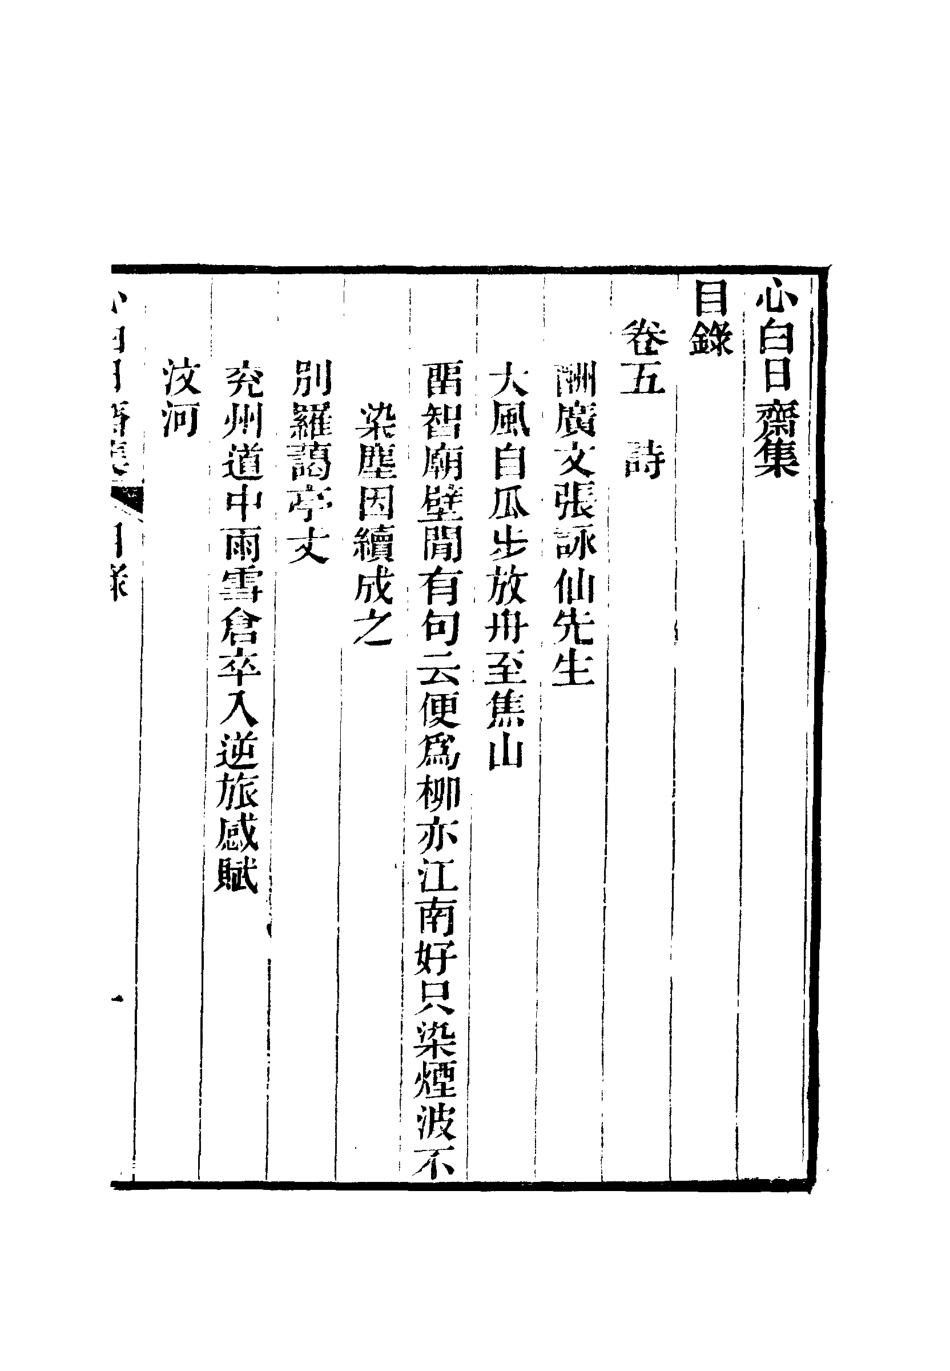 心白日齋集
目錄
卷五　詩
酬廣文張詠仙先生
大風自瓜步放舟至焦山
畱智廟壁閒有句云便爲柳亦江南好只染煙波不
染塵因續成之
別羅藹亭丈
兖州道中雨雪倉卒入逆旅感賦
汶河
心白日齋集　目錄　一